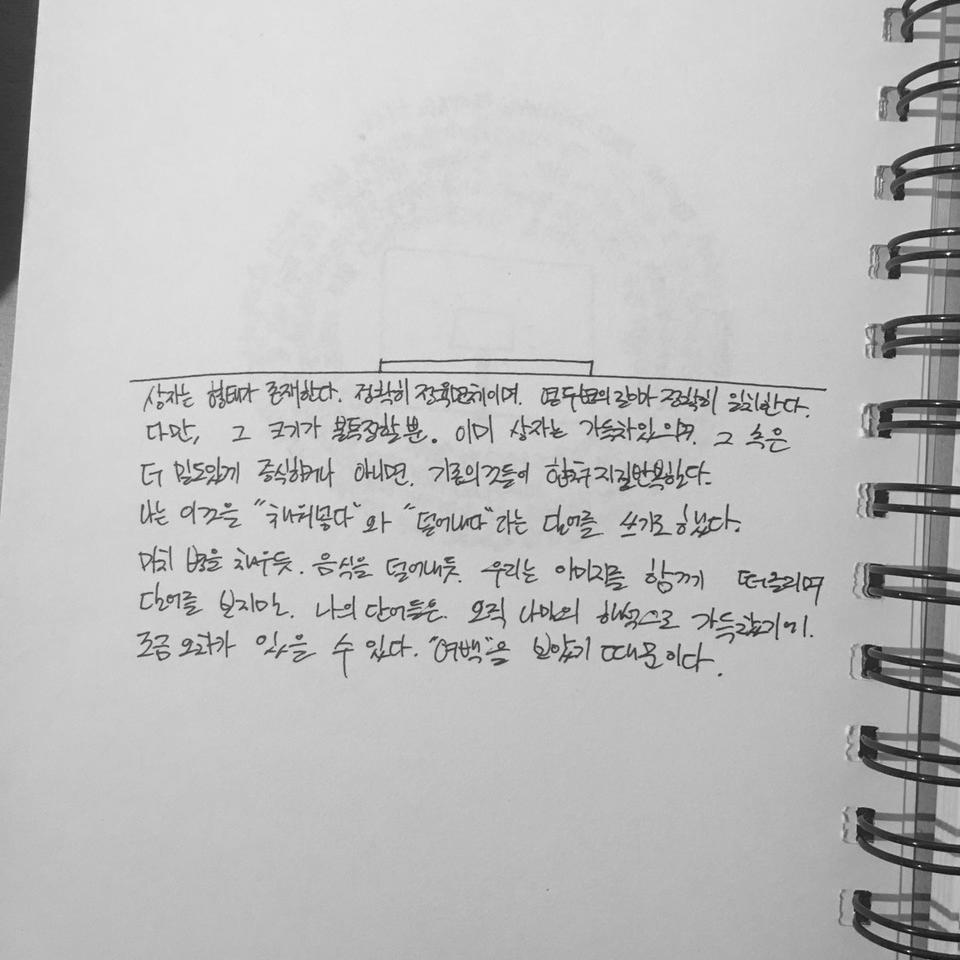 상자는 형태가 존재한다. 정확히 정육면체이며. 열두변의 길이가 정확히 일치한다.
다만, 그 크기가 불특정할뿐. 이미 상자는 가득차있으며. 그 속은
더 밀도있게 증식하거나 아니면. 기존의것들이 합쳐지길반복한다.
나는 이것을 "채워넣다"와 "덜어내다"라는 단어를 쓰기로했다.
마치 병을 채우듯. 음식을 덜어내듯. 우리는 이미지를 함께 떠올리며
단어를 보지만. 나의 단어들은. 오직 나만의 해석으로 가득찼기에.
조금 오차가 있을 수 있다. "여백"을 보았기 때문이다.